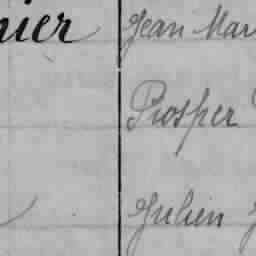 nier Jean Mar
Prosper
Julien